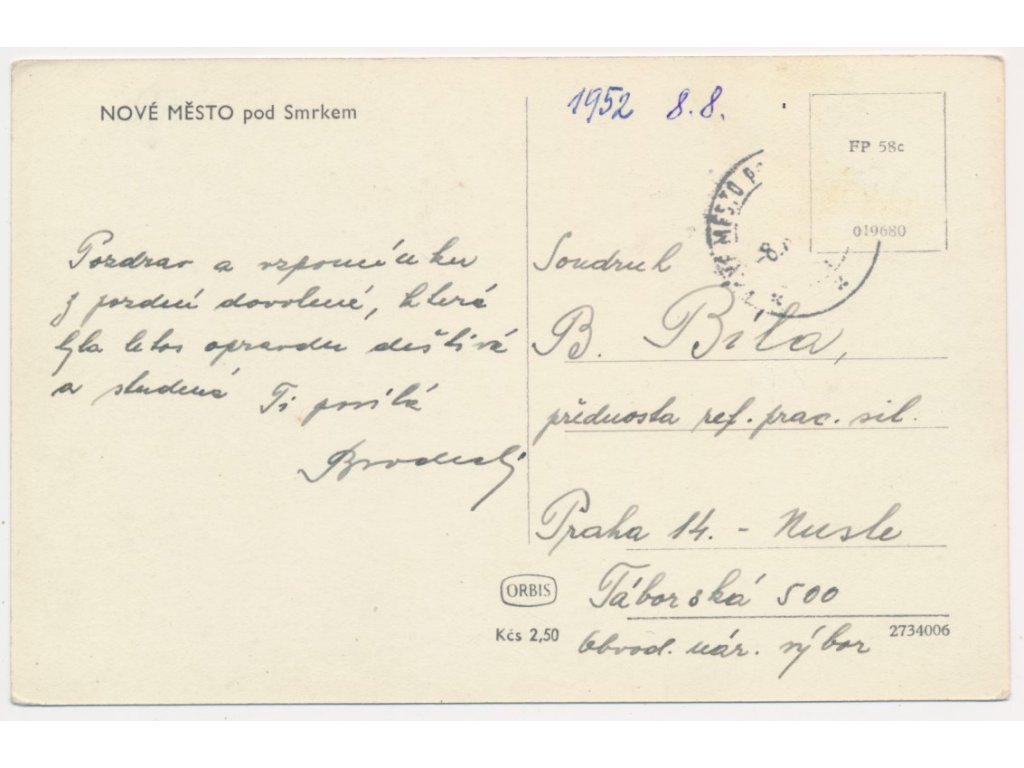 NOVÉ MĚSTO pod Smrkem
Pozdrav a vzpomínku
z pozdní dovolené, která
byla letos opravdu deštivá
a studená Ti posílá
1952 8.8.
FP 58c
019680
MĚSTO P
-8.
Soudruh
B. Bíla,
přednosta ref. prac. sil.
Praha 14. - Nusle
Táborská 500
Obvod. nár. výbor
ORBIS
Kčs 2,50
2734006